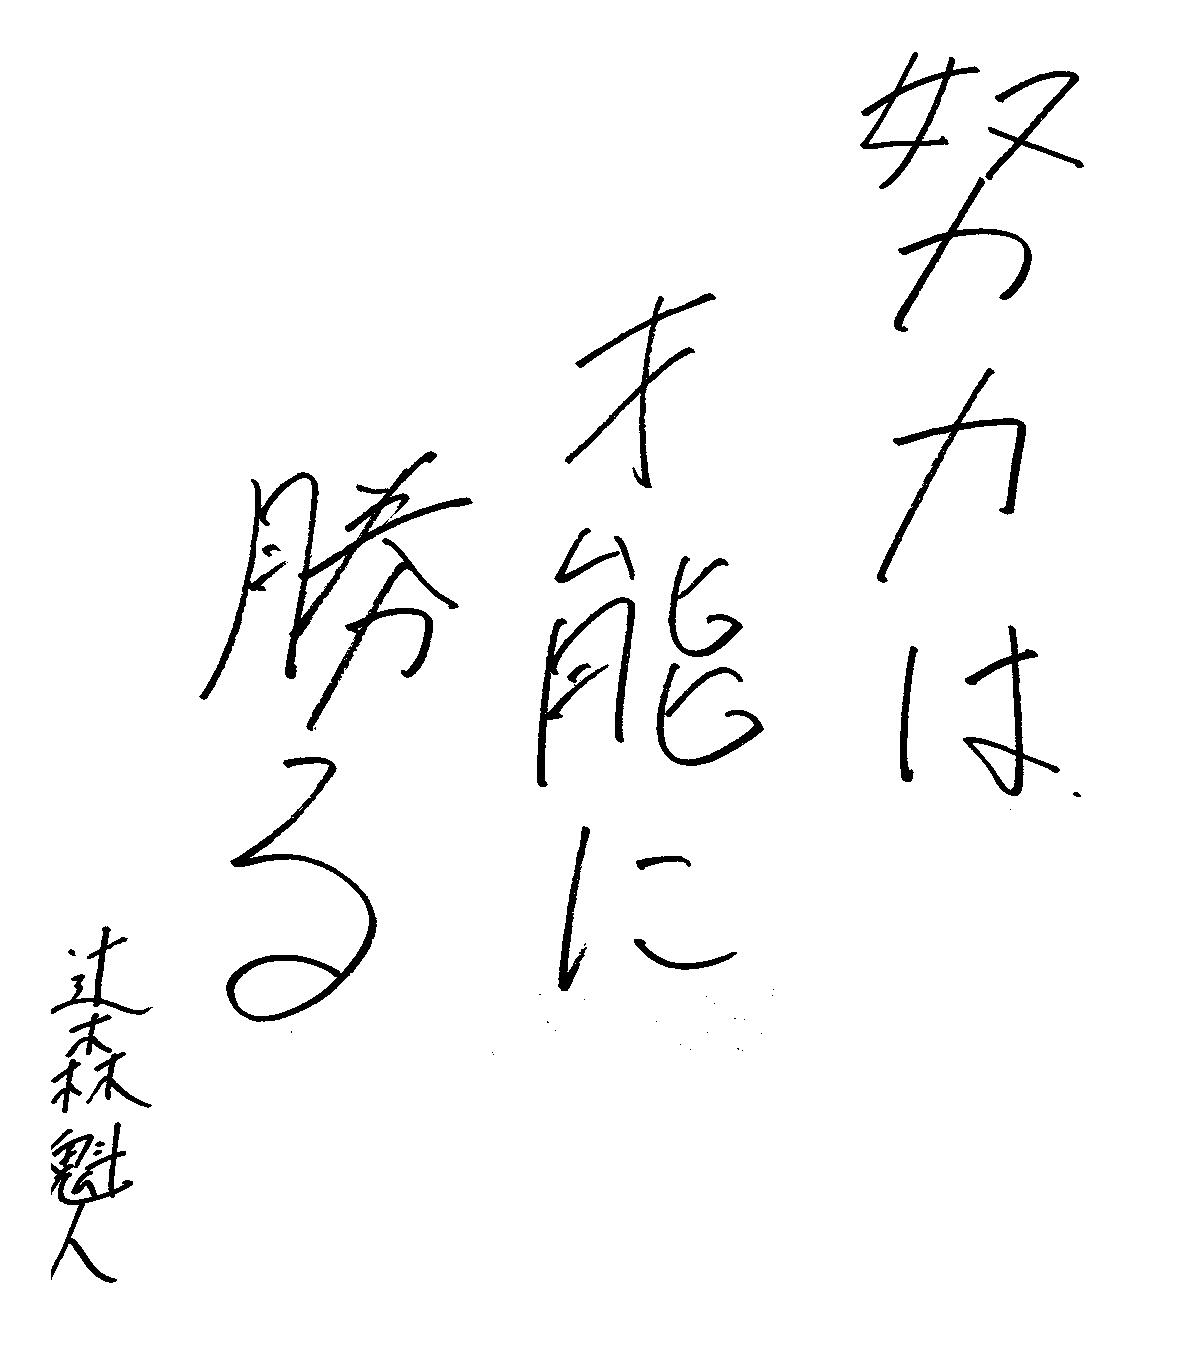 努力は
才能に
勝る
辻森魁人